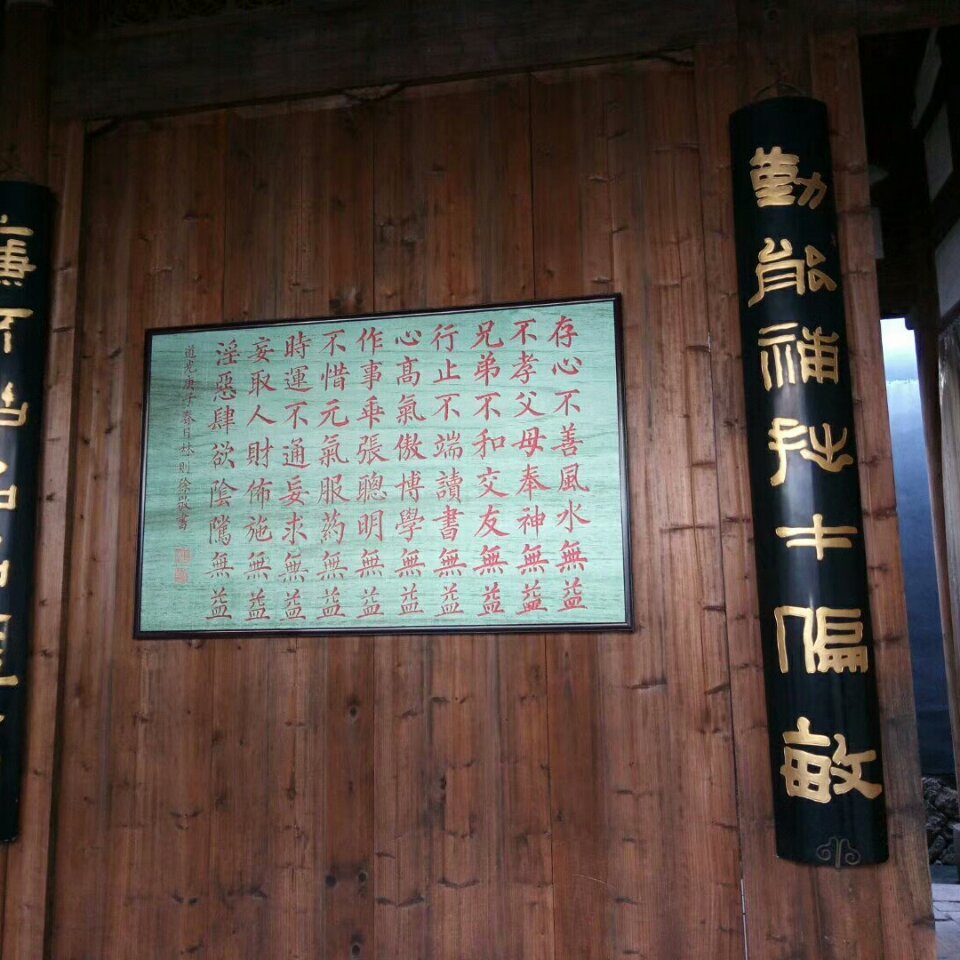 勤能補拙才偏敏
存心不善風水無益
不孝父母奉神無益
兄弟不和交友無益
行止不端讀書無益
心髙氣傲博學無益
作事乖張聰明無益
不惜元氣服药無益
時運不通妄求無益
妄取人財佈施無益
淫惡肆欲陰騭無益
道光庚子春月林則徐敬書